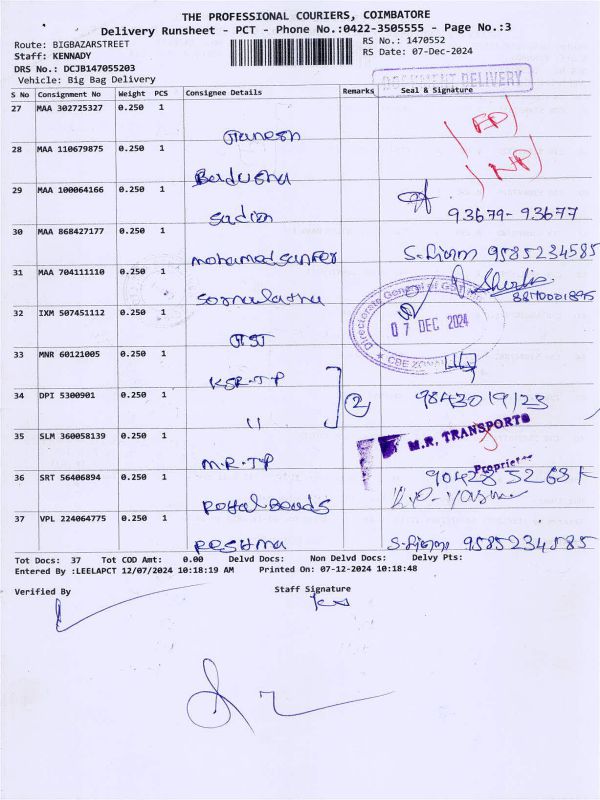 THE PROFESSIONAL COURIERS, COIMBATORE
Delivery Runsheet - PCT - Phone No.:0422-3505555 - Page No.:3
Route: BIGBAZARSTREET
RS No.: 1470552
Staff: KENNADY
RS Date: 07-Dec-2024
DRS No.: DCJB147055203
Vehicle: Big Bag Delivery
DOCUMENT DELIVERY
S No Consignment No Weight PCS Consignee Details Remarks Seal & Signature
27 MAA 302725327 0.250 1
Ganesh
FP
28 MAA 110679875 0.250 1
Badusha
NP
29 MAA 100064166 0.250 1
Sadiq
93679-93677
30 MAA 868427177 0.250 1
mohamed
9585234585
31 MAA 704111110 0.250 1
8870001895
Directorate General of
07 DEC 2024
32 IXM 507451112 0.250 1
GST
33 MNR 60121005 0.250 1
KSR-TP
34 DPI 5300901 0.250 1
11
2
35 SLM 360058139 0.250 1
M.R. TRANSPORTS
M.R-TP
36 SRT 56406894 0.250 1
Royal Beads
37 VPL 224064775 0.250 1
Reshma
9585234585
Tot Docs: 37 Tot COD Amt: 0.00 Delvd Docs: Non Delvd Docs: Delvy Pts:
Entered By :LEELAPCT 12/07/2024 10:18:19 AM Printed On: 07-12-2024 10:18:48
Verified By
Staff Signature